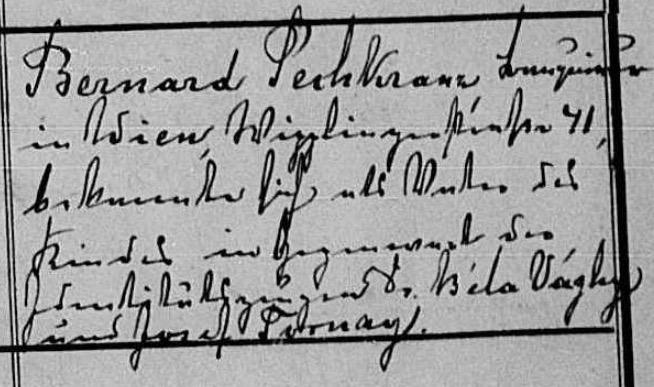 Bernard Pechkranz Banquier
in Wien, Wipplingerstraße 41,
bekannte sich als Vater des
Kindes in Gegenwart der
Identitätszeugen Dr. Béla Vághy
und Josef Tornay.